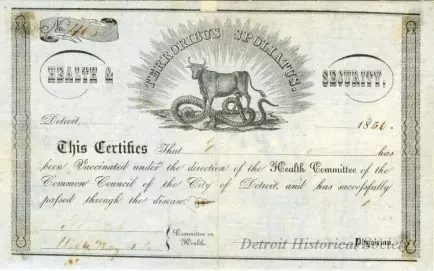 No.
TERRORIBUS SPOLIATUS.
HEALTH &
SECURITY,
Detroit, 1850.
This Certifies That has
been Vaccinated under the direction of the Health Committee of the
Common Council of the City of Detroit, and has successfully
passed through the disease.
Committee on
Health.
Physician.
Detroit Historical Society